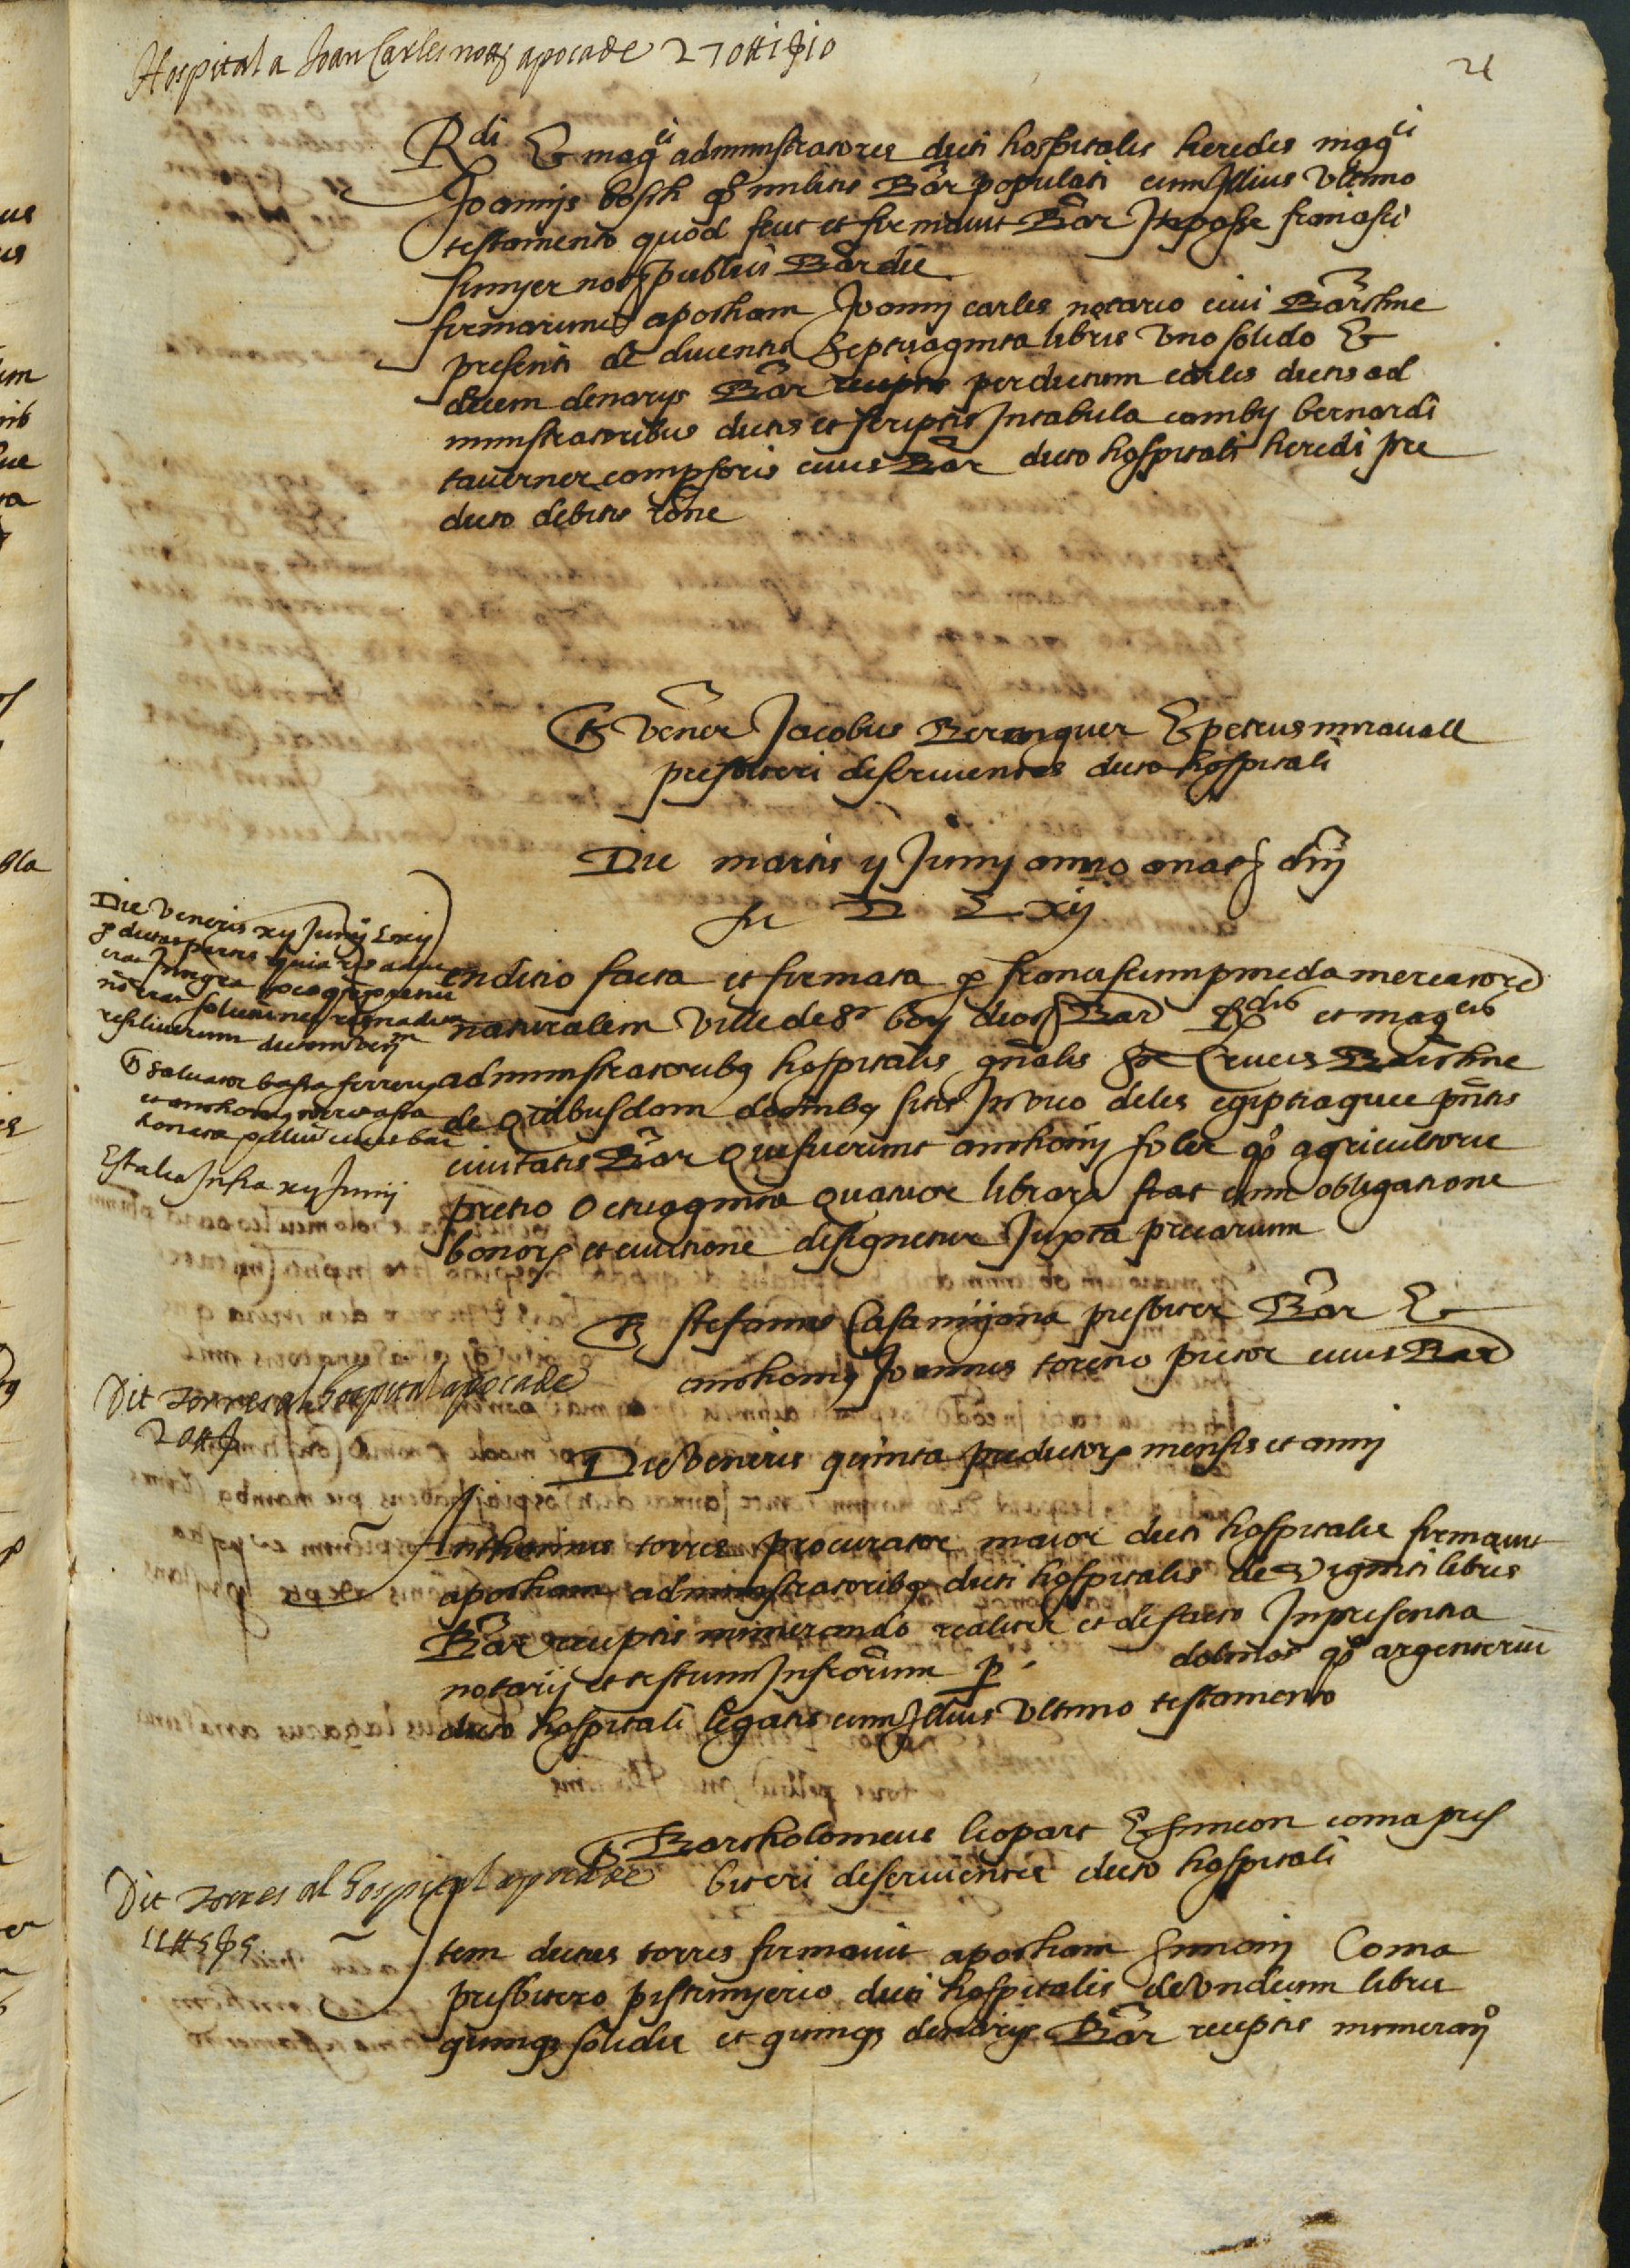 Hospital a Joan Carles nott apoca de 270 ll 1 s 10
21
Rdi & magci administratores dicti hospitalis heredes magci
Joannis bosch qo militis Bar populati cum illius ultimo
testamento quod fecit et firmavit Bar in posse francisci
sunyer nott publici Bar die
firmarunt apocham Joanni carles notario civi Barchne
presenti de ducentis septuaginta libris uno solido &
decem denarijs Bar receptis per dictum carles dictis ad
ministratoribus dictis et scriptis in tabula cambij bernardi
taverner campsoris civis Bar dicto hospitali heredi pre
dicto debitis rone
Ts vener Jacobus Beranguer & petrus miravall
presbiteri deservientes dicto hospitali
Die martis ij Junij anno a nat dnj
M D L xij
Die veneris xij Junij Lxij
p dictas partes quia res adhuc
erat integra
non erat solutum nec
resiliverunt dictam ven
Ts salvator basta ferrerius
et anthonius
Est alia infra xij Junij
enditio facta et firmata p franciscum pineda mercatore
naturalem ville de St boy dioc Bar Rdis et magcis
administratoribq hospitalis gnalis Ste Crucis Barchne
de quibusdam domibq sitis in vico de les egiptiaques pntis
civitatis Bar que fuerunt anthonij soler qo agricultoris
pretio octuaginta quatuor librarz fiat cum obligatione
bonorz et evictione designetur juxta precarium
Ts stefanus Casamijana presbiter Bar &
anthonius Joannes toreno pictor civis Bar
Dit Torres al hospital apoca de
20 ll s
Die veneris quinta predictorz mensis et anni
Anthonius torres procurator maior dicti hospitalis firmavit
apocham administratoribq dicti hospitalis de viginti libris
Bar receptis numerando realiter et de facto in presentia
notarij et testium infrorum p dolmos qo argenterium
dicto hospitali legatis cum illius ultimo testamento
Ts Bartholomeus leopart & simeon coma pres
biteri deservientes dicto hospitali
Dit Torres al hospital apoca de
11 ll 5 s 5
Item dictus torres firmavit apocham simoni Coma
presbitero pistrinyerio dicti hospitalis de undecim libris
quinq solidis et quinq denarijs Bar receptis numerando